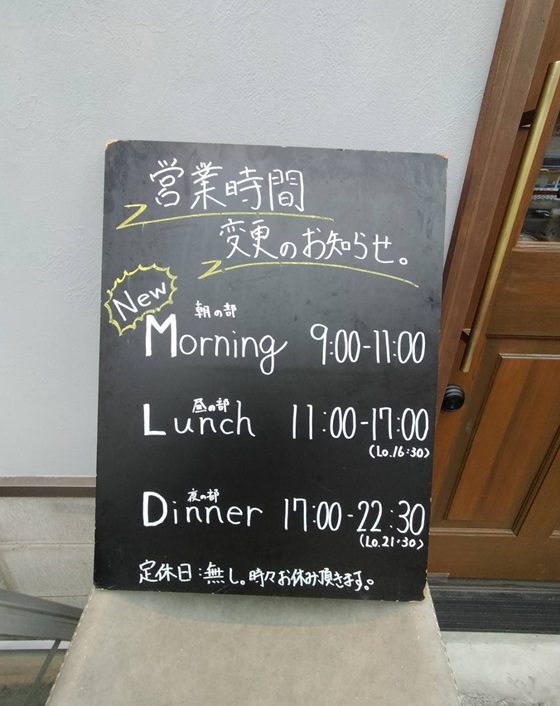 営業時間
変更のお知らせ。
New
朝の部
Morning 9:00-11:00
昼の部
Lunch 11:00-17:00
(Lo.16:30)
夜の部
Dinner 17:00-22:30
(Lo.21:30)
定休日:無し。時々お休み頂きます。